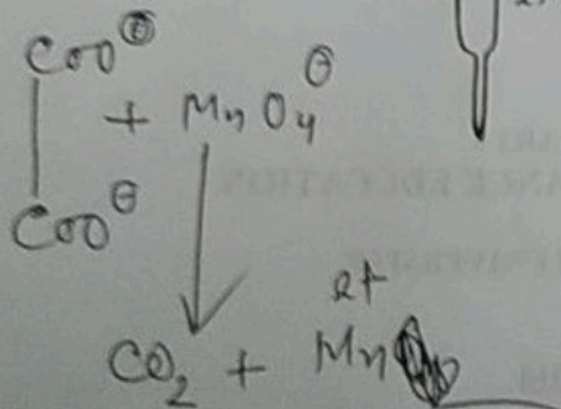 COO⊖
+ MnO4⊖
COO⊖
CO2 + Mn2+